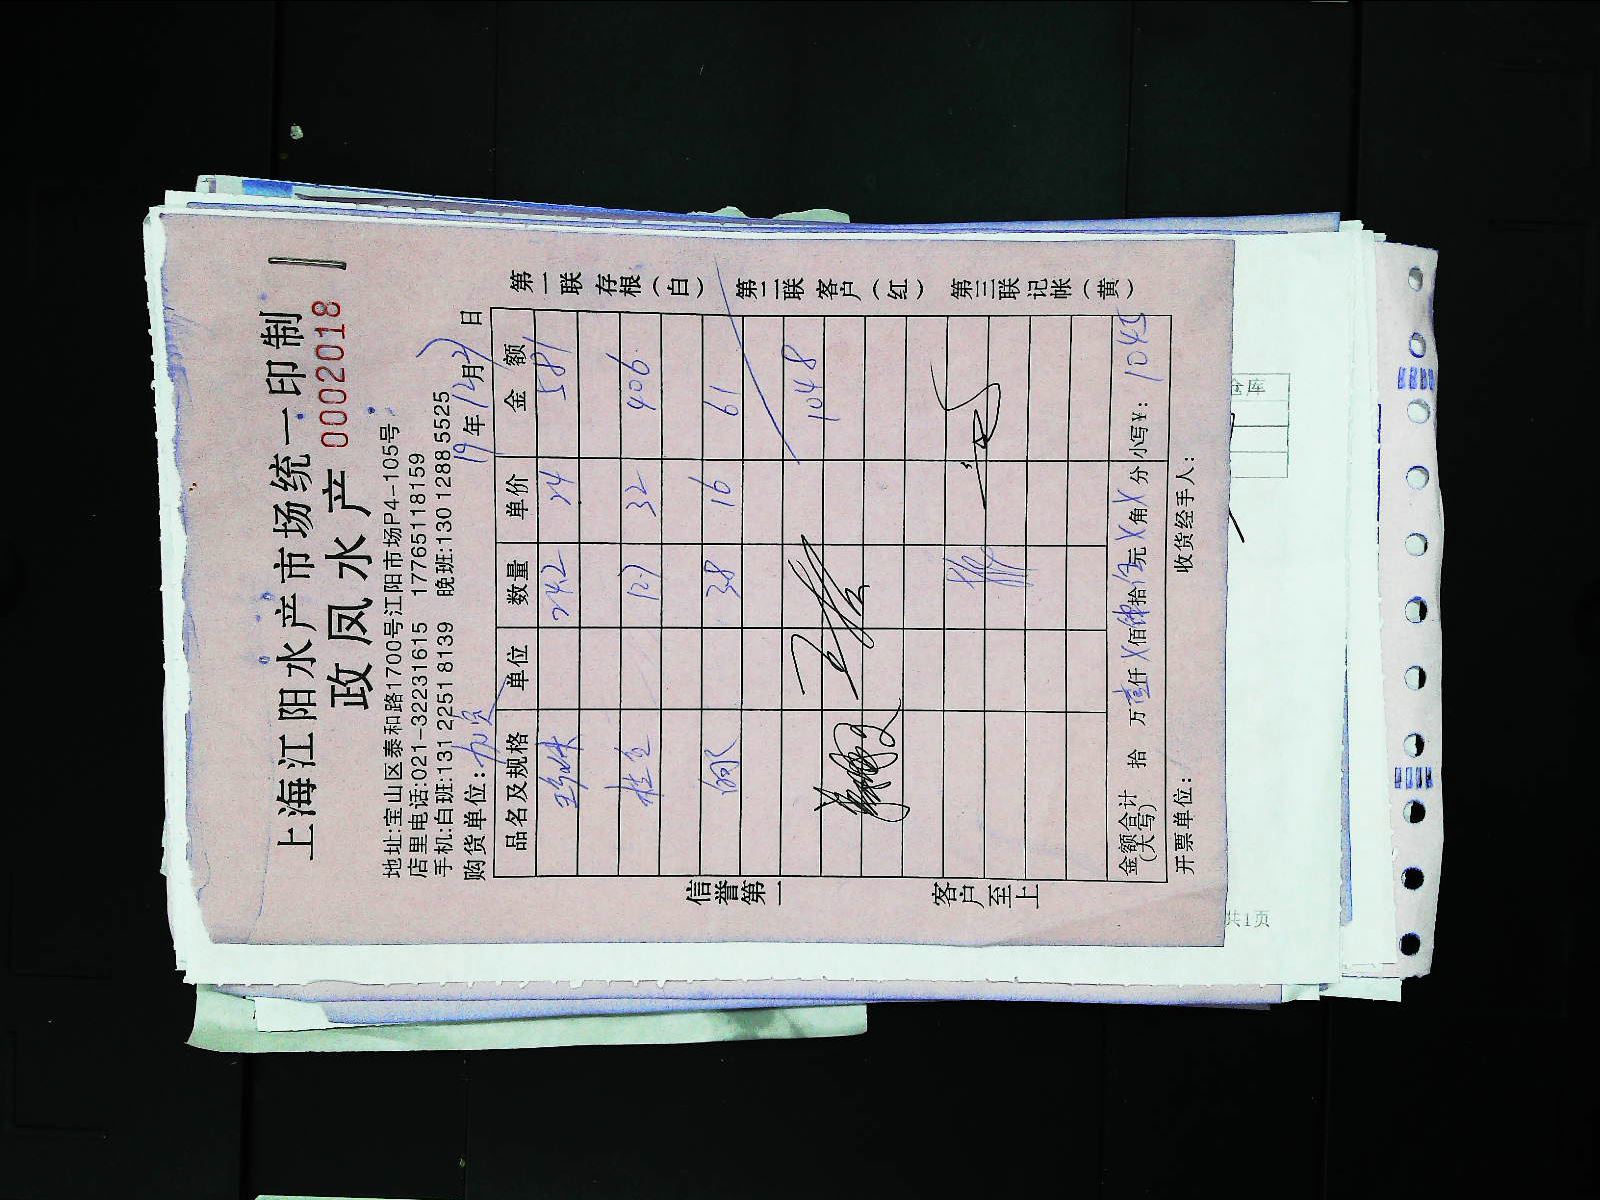 上海江阳水产市场统一印制
政凤水产 0002018
地址:宝山区泰和路1700号江阳市场P4-105号
店里电话:021-32231615 17765118159
手机:白班:131 2251 8139 晚班:130 1288 5525
购货单位: 19年12月21日
品名及规格 单位 数量 单价 金额
242 24 581
12.7 32 406
38 16 61
1048
金额合计(大写) 拾 万壹仟X佰肆拾伍元X角X分 小写¥: 1045
开票单位: 收货经手人:
第一联 存根(白) 第二联 客户(红) 第三联 记帐(黄)
信誉第一 客户至上
仓库
共1页